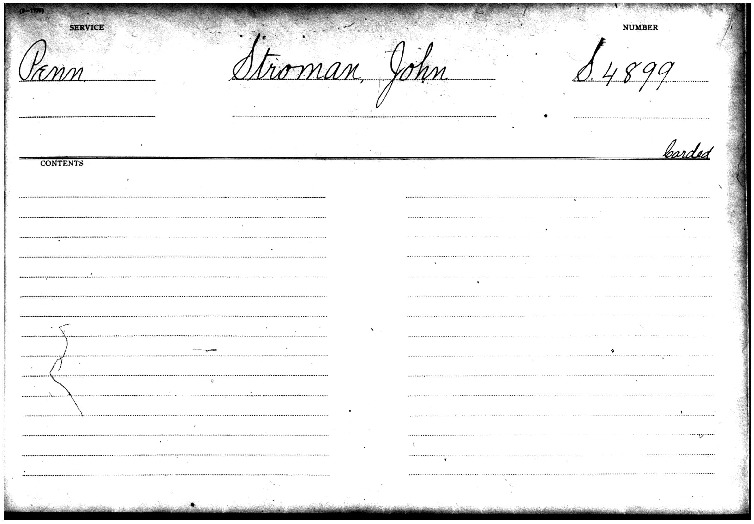 SERVICE NUMBER
Penn Stroman, John S. 4899
Carded
CONTENTS